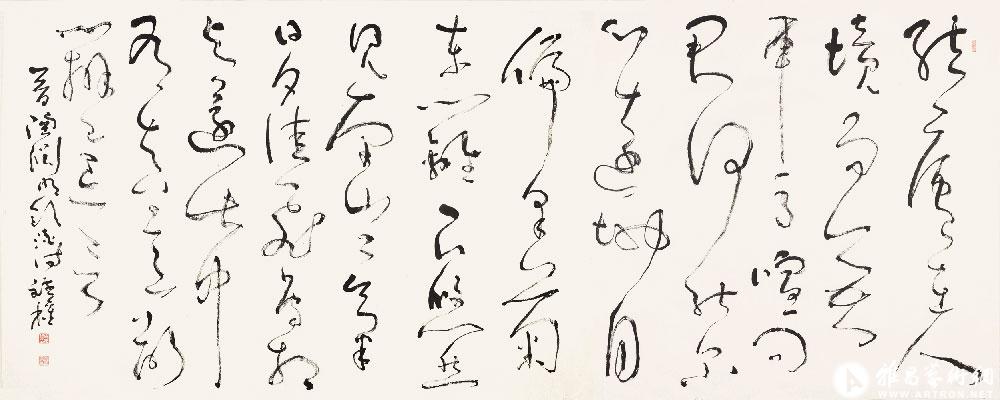 結廬在人
境而無
車馬喧問
君何能爾
心遠地自
偏采菊
東籬下悠然
見南山山氣
日夕佳飛鳥相
與還此中
有真意欲
辨已忘言
晉陶淵明飲酒詩
雅昌藝術網
WWW.ARTRON.NET